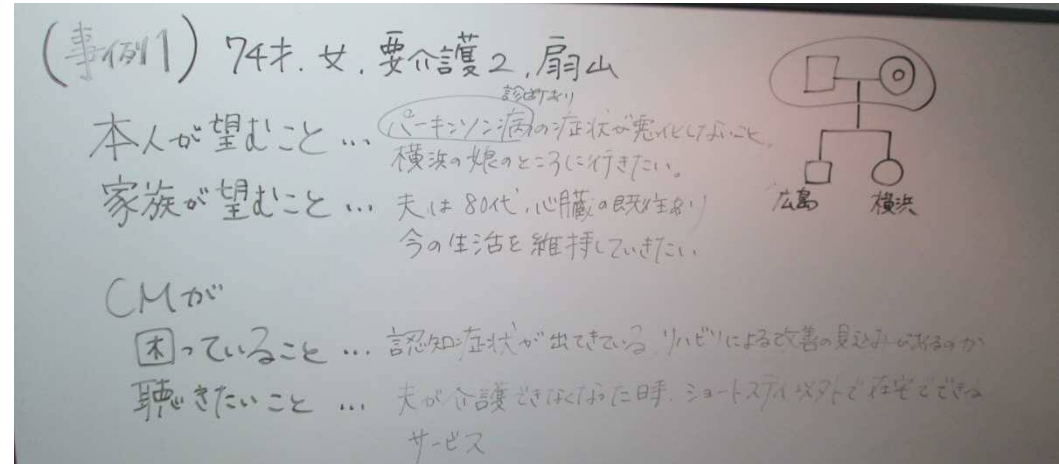 (事例1) 74才. 女. 要介護2, 扇山
診断あり
本人が望むこと… パーキンソン病の症状が悪化しないこと。
横浜の娘のところに行きたい。
家族が望むこと… 夫は80代, 心臓の既往あり
今の生活を維持していきたい
広島 横浜
CMが
困っていること… 認知症状が出てきている, リハビリによる改善の見込みがあるのか
聴きたいこと… 夫が介護できなくなった時, ショートステイ以外で在宅でできる
サービス